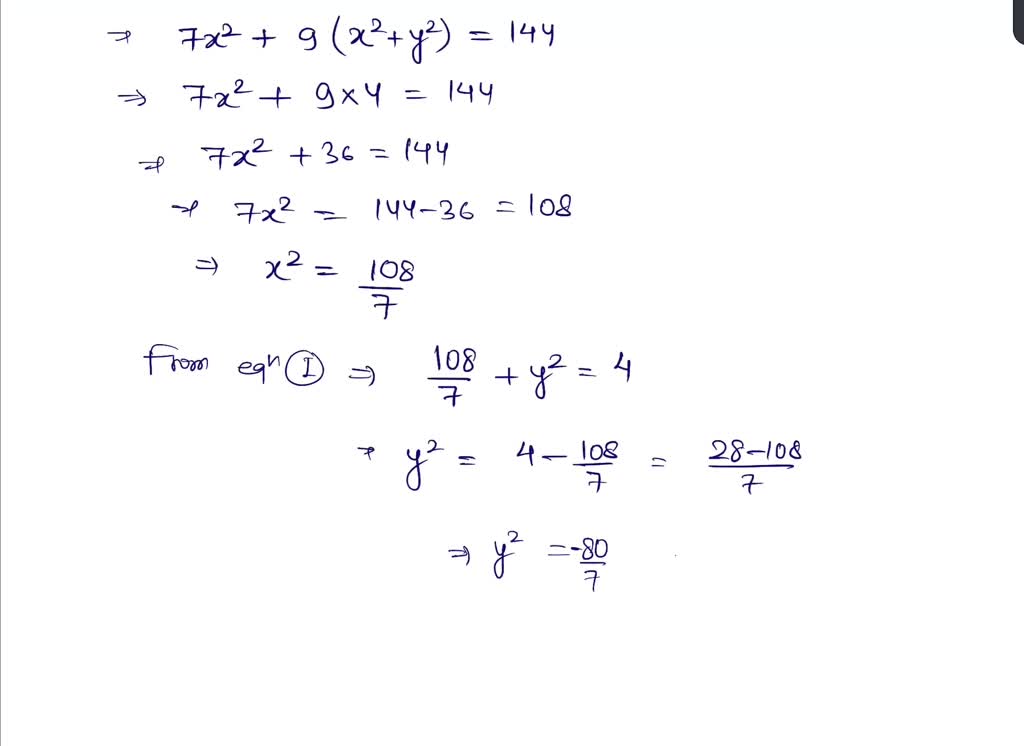 ⇒ 7x² + 9(x²+y²) = 144
⇒ 7x² + 9×4 = 144
⇒ 7x² + 36 = 144
⇒ 7x² = 144-36 = 108
⇒ x² = 108/7
From eqⁿ Ⓘ ⇒ 108/7 + y² = 4
⇒ y² = 4 - 108/7 = 28-108/7
⇒ y² = -80/7